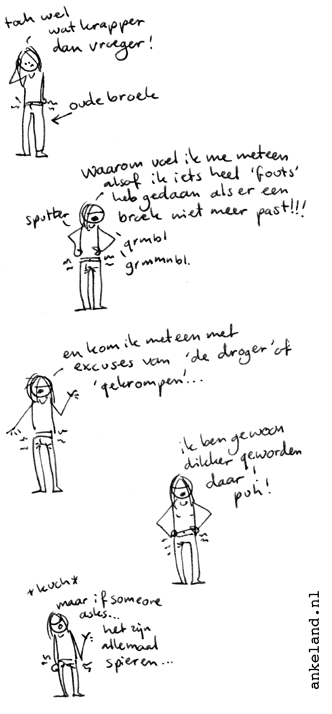 toch wel
wat krapper
dan vroeger!
oude broek
waarom voel ik me meteen
alsof ik iets heel 'fouts'
heb gedaan als er een
broek niet meer past!!!
sputter
grmbl
grmmnbl.
en kom ik meteen met
excuses van 'de droger' of
'gekrompen'...
ik ben gewoon
dikker geworden
daar!
puh!
*kuch*
maar if someone
asks...
het zijn
allemaal
spieren...
ankeland.nl